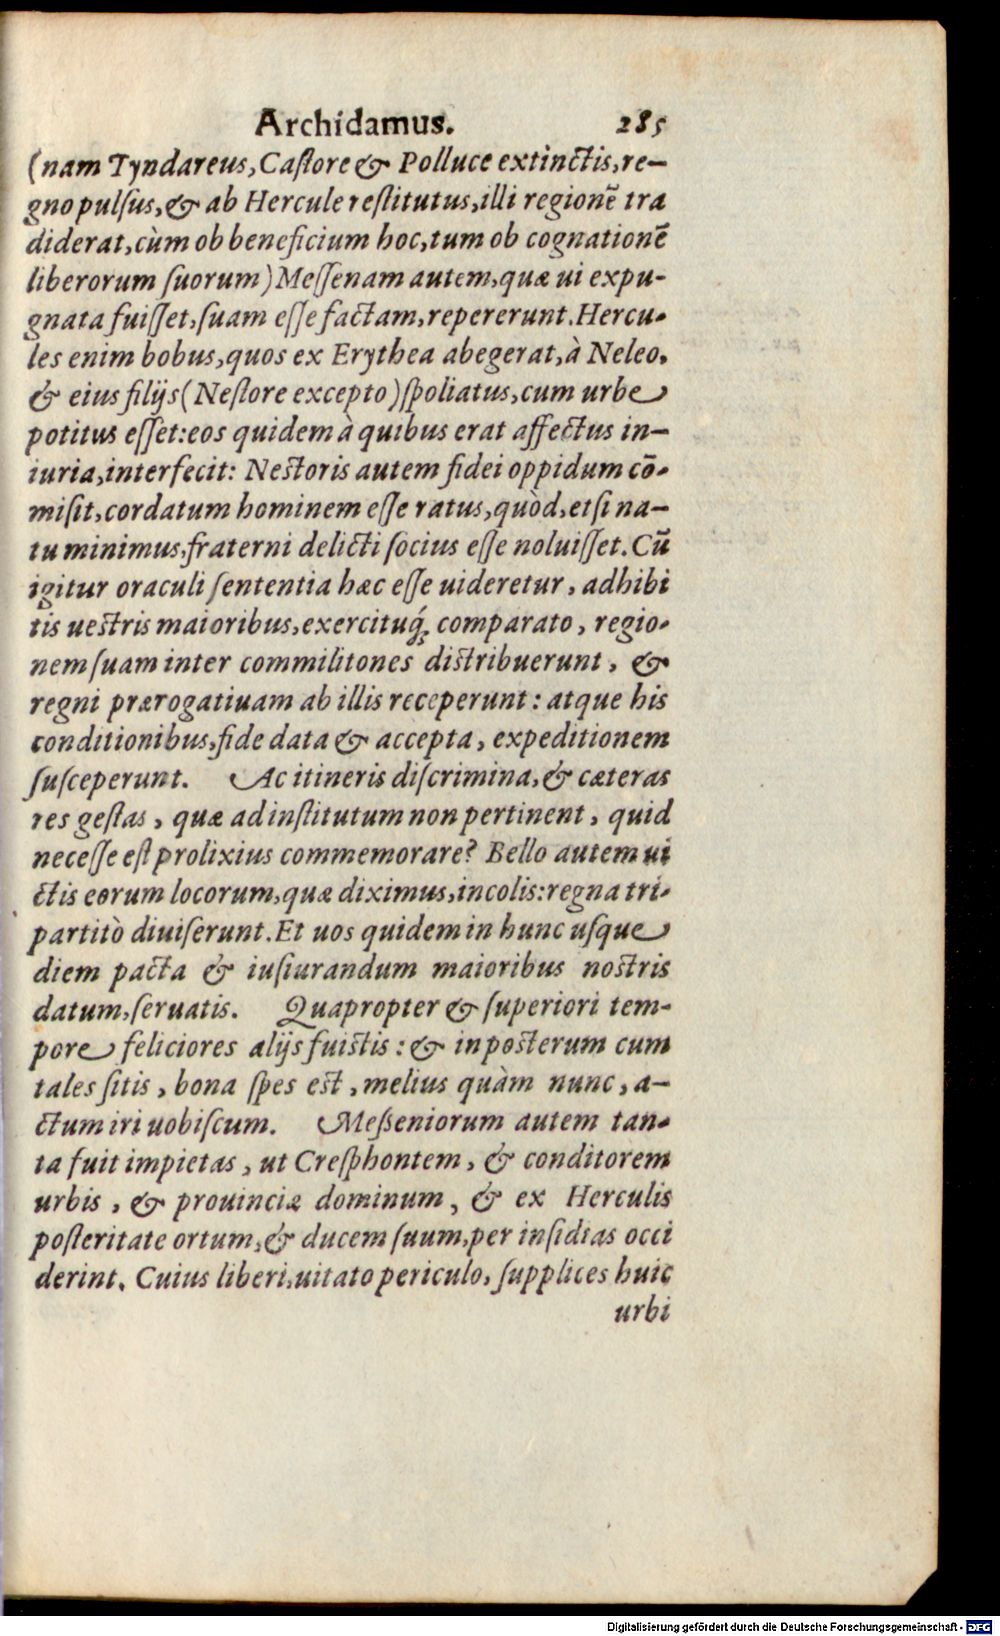 Archidamus. 285
(nam Tyndareus, Caſtore & Polluce extinctis, re-
gno pulſus, & ab Hercule reſtitutus, illi regionẽ tra
diderat, cùm ob beneficium hoc, tum ob cognationẽ
liberorum ſuorum) Meſſenam autem, quæ ui expu-
gnata fuiſſet, ſuam eſſe factam, repererunt. Hercu-
les enim bobus, quos ex Erythea abegerat, à Neleo,
& eius filijs (Neſtore excepto) ſpoliatus, cum urbe
potitus eſſet: eos quidem à quibus erat affectus in-
iuria, interfecit: Nestoris autem fidei oppidum cõ-
miſit, cordatum hominem eſſe ratus, quòd, etſi na-
tu minimus, fraterni delicti ſocius eſſe noluiſſet. Cũ
igitur oraculi ſententia hæc eſſe uideretur, adhibi
tis uestris maioribus, exercituq́; comparato, regio-
nem ſuam inter commilitones distribuerunt, &
regni prærogatiuam ab illis receperunt: atque his
conditionibus, fide data & accepta, expeditionem
ſuſceperunt. Ac itineris diſcrimina, & cæteras
res geſtas, quæ ad inſtitutum non pertinent, quid
neceſſe eſt prolixius commemorare? Bello autem ui
ctis eorum locorum, quæ diximus, incolis: regna tri-
partitò diuiſerunt. Et uos quidem in hunc uſque
diem pacta & iuſiurandum maioribus nostris
datum, ſeruatis. Quapropter & ſuperiori tem-
pore feliciores alijs fuistis: & in posterum cum
tales ſitis, bona ſpes est, melius quàm nunc, a-
ctum iri uobiſcum. Meßeniorum autem tan-
ta fuit impietas, ut Creſphontem, & conditorem
urbis, & prouinciæ dominum, & ex Herculis
poſteritate ortum, & ducem ſuum, per inſidias occi
derint. Cuius liberi, uitato periculo, ſupplices huic
urbi
Digitalisierung gefördert durch die Deutsche Forschungsgemeinschaft - DFG